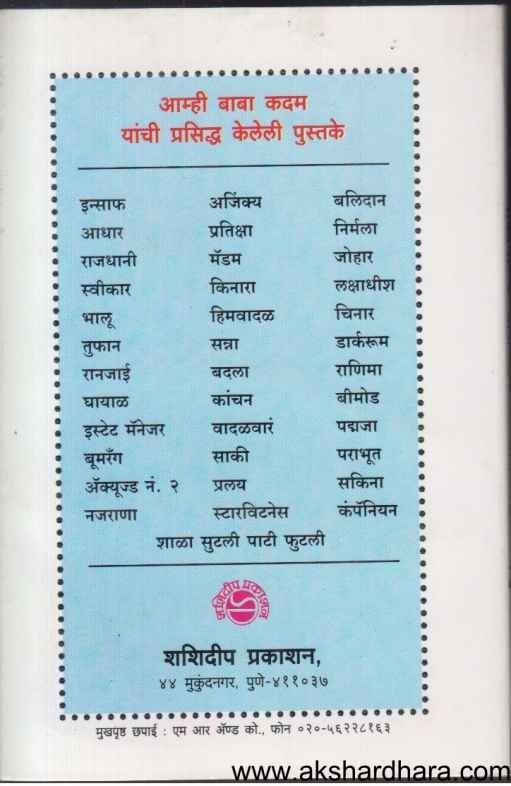 आम्ही बाबा कदम
यांची प्रसिद्ध केलेली पुस्तके
इन्साफ अजिंक्य बलिदान
आधार प्रतिक्षा निर्मला
राजधानी मॅडम जोहार
स्वीकार किनारा लक्षाधीश
भालू हिमवादळ चिनार
तुफान सन्ना डार्करूम
रानजाई बदला राणिमा
घायाळ कांचन बीमोड
इस्टेट मॅनेजर वादळवारं पद्मजा
बूमरँग साकी पराभूत
ॲक्यूज्ड नं. २ प्रलय सकिना
नजराणा स्टारविटनेस कंपॅनियन
शाळा सुटली पाटी फुटली
शशिदीप प्रकाशन
शशिदीप प्रकाशन,
४४ मुकुंदनगर, पुणे-४११०३७
मुखपृष्ठ छपाई : एम आर ॲण्ड को., फोन ०२०-५६२२८१६३
www.akshardhara.com